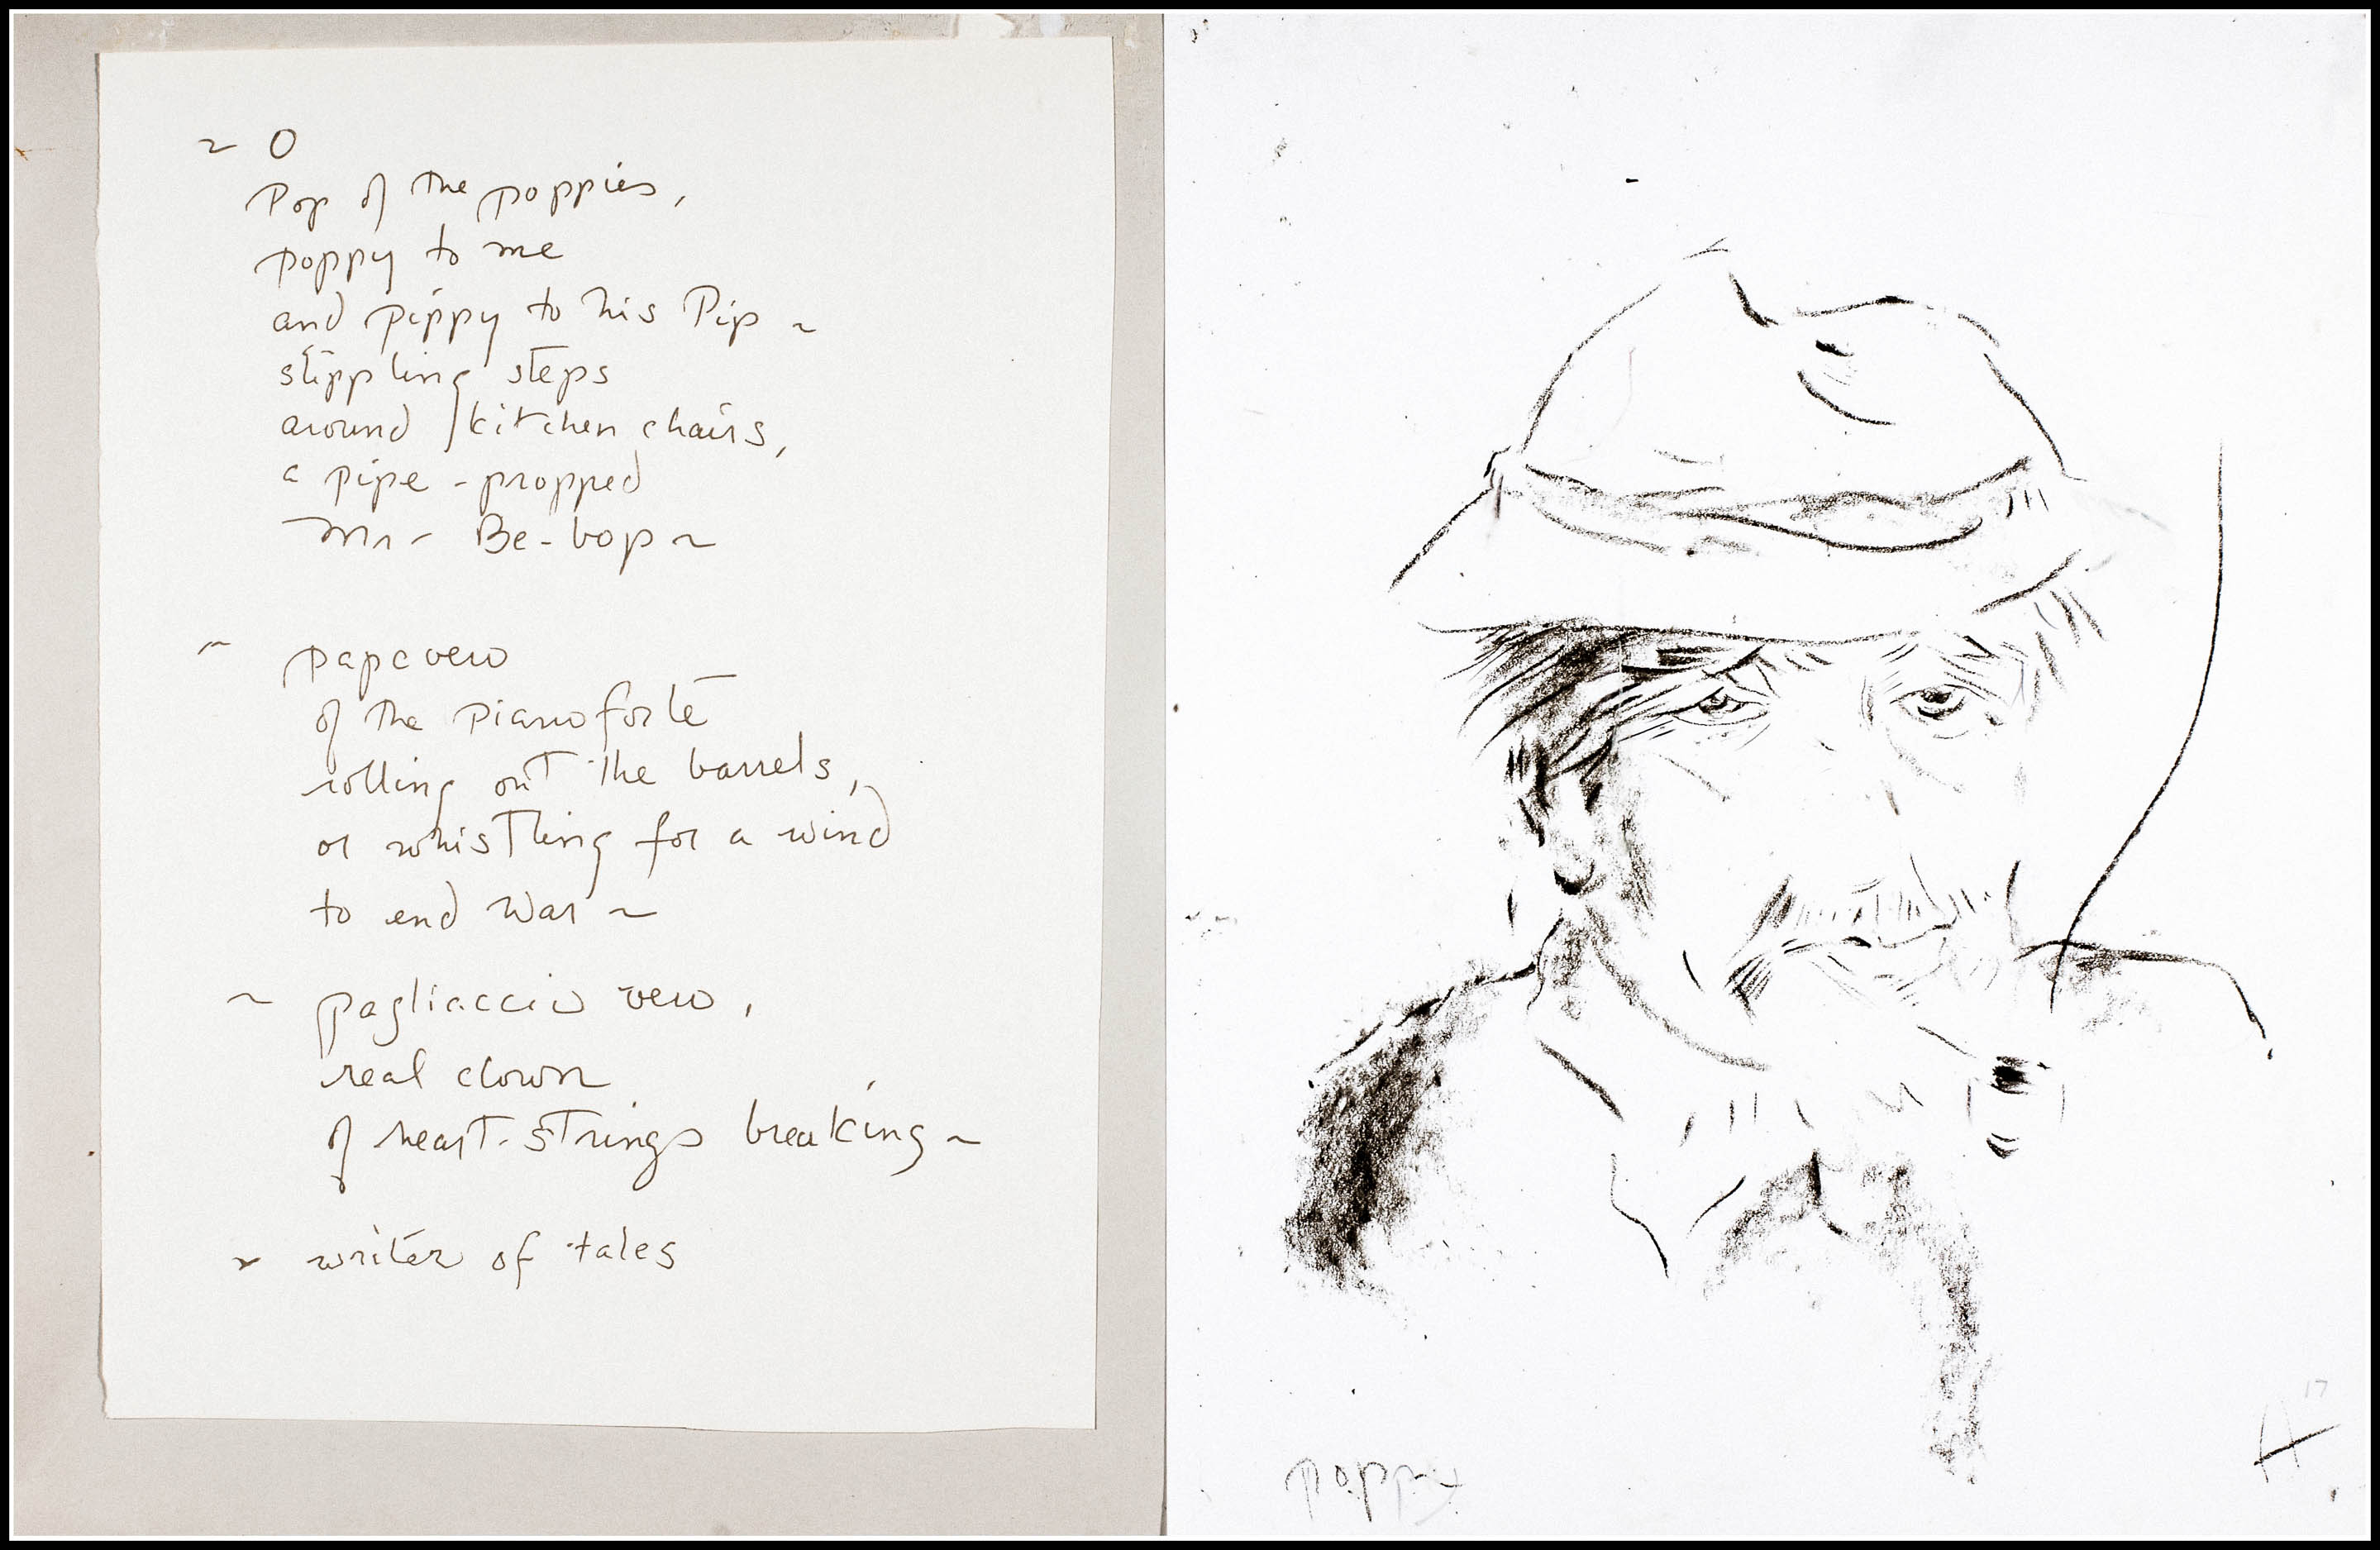 ~ O
Pop of the poppies,
poppy to me
and pippy to his Pip ~
stippling steps
around kitchen chairs,
a pipe-propped
Mr- Be-bop ~
~ papavero
of the pianoforte
rolling out the barrels,
or whistling for a wind
to end war ~
~ pagliaccio vero,
real clown
of heart-strings breaking ~
~ writer of tales
poppy
A 17